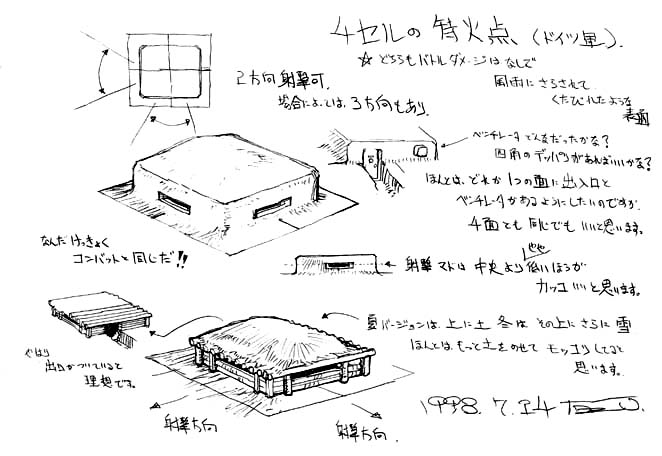 4セルの特火点 (ドイツ軍).
☆ どちらもバトルダメージはなしで
風雨にさらされて
くたびれたような
表面
2方向射撃可.
場合によっては、3方向もあり.
ベンチレータどんなだったかな?
四角のデッパリがあればいいかな?
ほんとは、どれか1つの面に出入口と
ベンチレータがあるようにしたいのですが、
4面とも同じでもいいと思います。
なんだけっきょく
コンバットと同じだ!!
射撃マドは中央よりやや低いほうが
カッコいいと思います。
夏バージョンは、上に土 冬はその上にさらに雪
ほんとは、もっと土をのせてモッコリしてると
思います。
やはり
出入口がついていると
理想です。
射撃方向
射撃方向.
1998.7.24